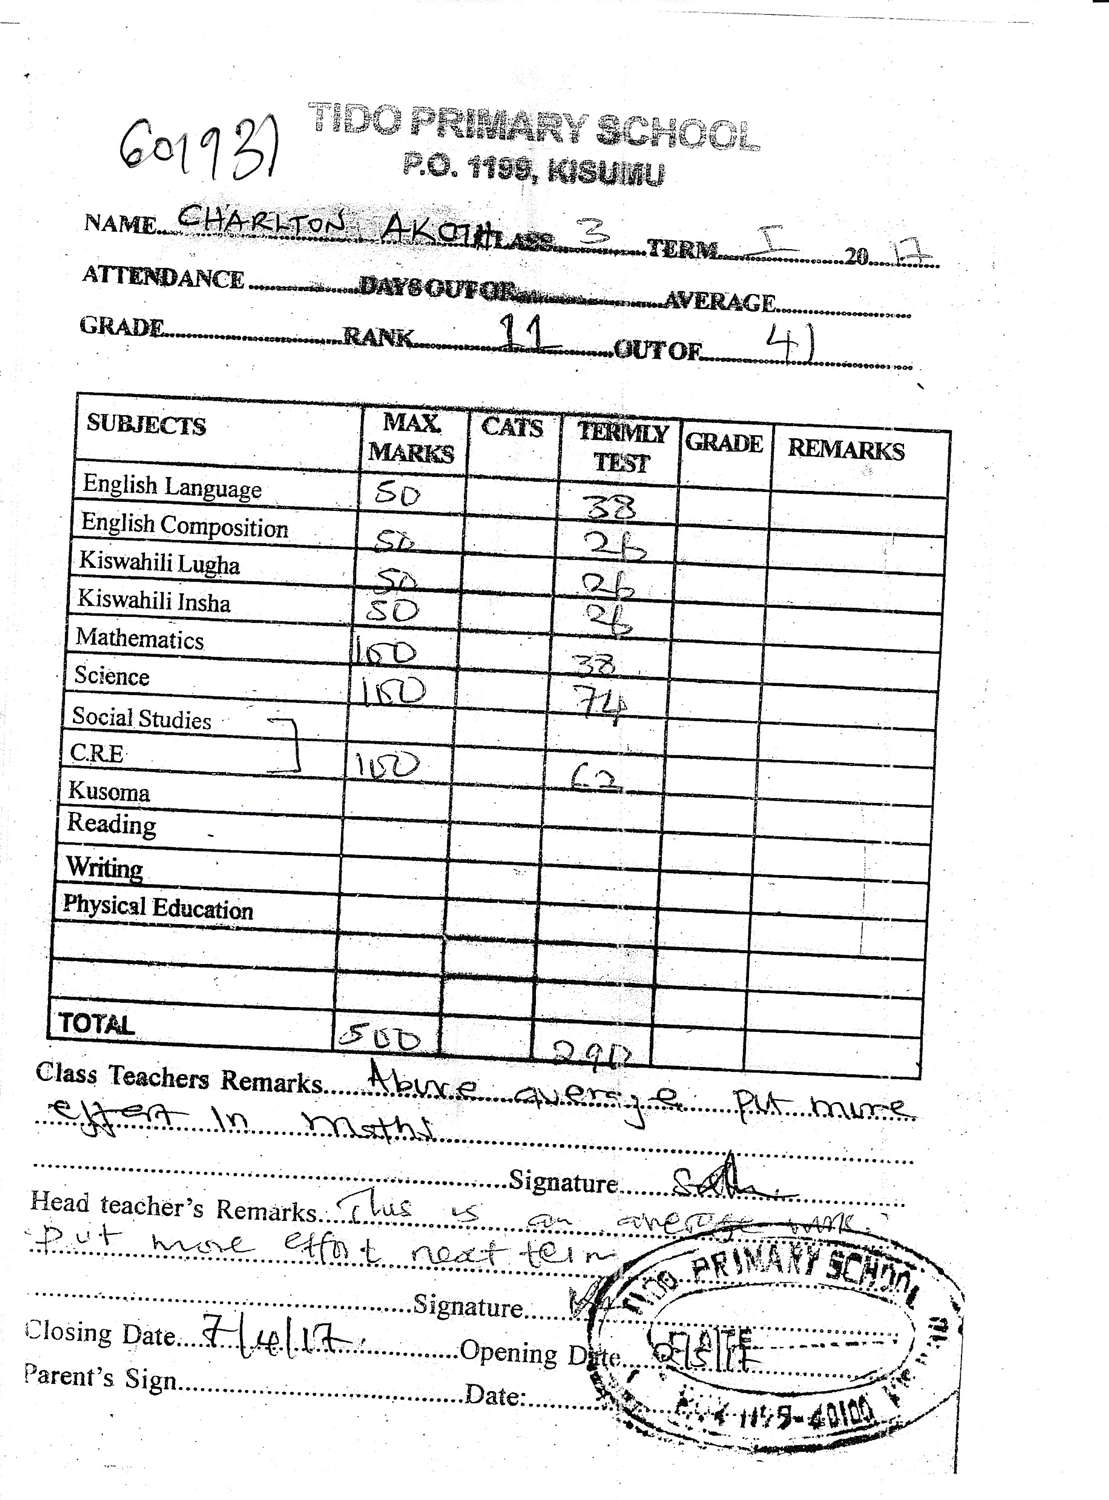 601931
TIDO PRIMARY SCHOOL
P.O. 1199, KISUMU
NAME CHARLTON AKOTH CLASS 3 TERM I 2017
ATTENDANCE DAYS OUT OF AVERAGE
GRADE RANK 11 OUT OF 41
SUBJECTS MAX. MARKS CATS TERMLY TEST GRADE REMARKS
English Language 50 38
English Composition 50 26
Kiswahili Lugha 50 26
Kiswahili Insha 50 26
Mathematics 100 38
Science 100 74
Social Studies
C.R.E 100 62
Kusoma
Reading
Writing
Physical Education
TOTAL 500 290
Class Teachers Remarks Above average put more
effort in maths
Signature
Head teacher's Remarks This is an average work.
put more effort next term
Signature
Closing Date 7/4/17 Opening Date 2/5/17
Parent's Sign Date:
TIDO PRIMARY SCHOOL
DATE
1199-40100